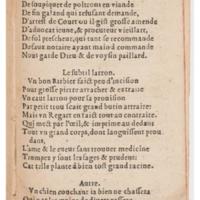 De soupiquer de poltrons en viande
De fin galand qui refusant demande,
D'arrest de Court ou il gist grosse amende
D'aduocat ienne, & procureur vieillart,
De sol prescheur, qui tant se recommande
De faux notaire ayant main à commande
Nous gard Dieu & de voysin paillard.
Le subtil larron.
Vn bon Barbier faict peu d'incision
Pour grosse pierre arracher & extraire
Vn caut larron pour sa prouision
Par petit trou scait grand butin attraire:
Mais vn Regart en faict tout au contraire,
Qui mect par l'œil, & imprime au dedans
Tout vn grand corps, dont languissent prou
dans,
L'ame & le cueur sans trouuer medicine
Trompez y sont les sages & prudens:
Cat telle plante à bien tost grand racine.
Autre.
Vn chien couchant ia bien ne chassera